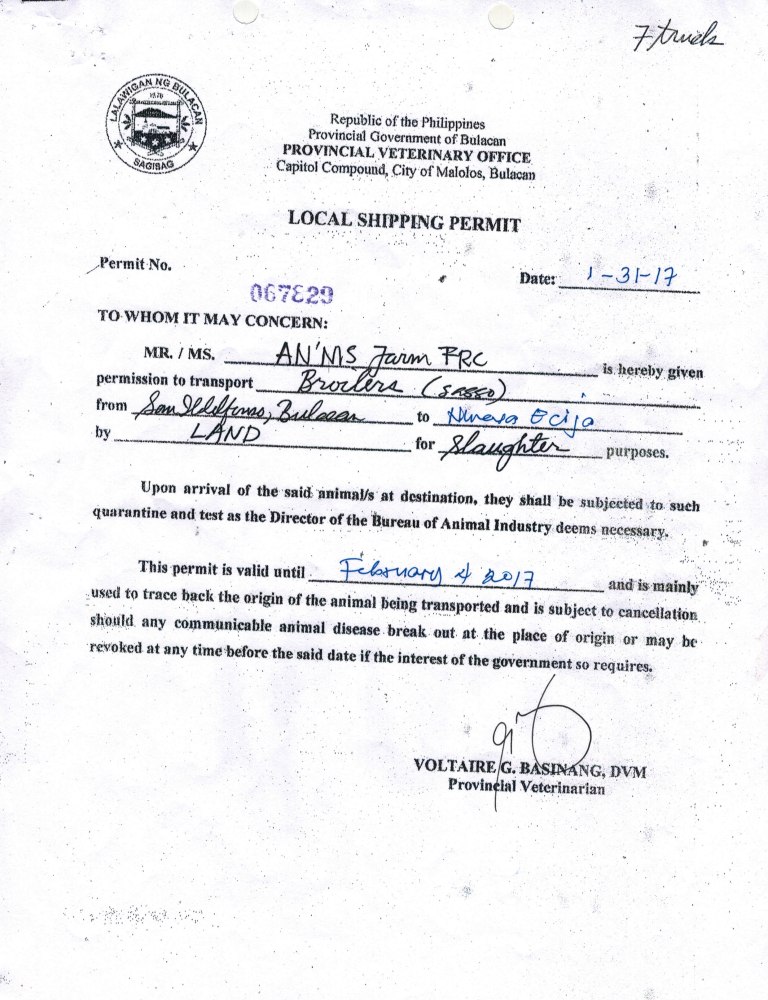 7 trucks
LALAWIGAN NG BULACAN
1578
SAGISAG
Republic of the Philippines
Provincial Government of Bulacan
PROVINCIAL VETERINARY OFFICE
Capitol Compound, City of Malolos, Bulacan
LOCAL SHIPPING PERMIT
Permit No.
067829
Date: 1-31-17
TO WHOM IT MAY CONCERN:
MR. / MS. AN'MS Farm FRC is hereby given
permission to transport Broilers (SASSO)
from San Ildefonso, Bulacan to Nueva Ecija
by LAND for Slaughter purposes.
Upon arrival of the said animal/s at destination, they shall be subjected to such
quarantine and test as the Director of the Bureau of Animal Industry deems necessary.
This permit is valid until February 4 2017 and is mainly
used to trace back the origin of the animal being transported and is subject to cancellation
should any communicable animal disease break out at the place of origin or may be
revoked at any time before the said date if the interest of the government so requires.
VOLTAIRE G. BASINANG, DVM
Provincial Veterinarian